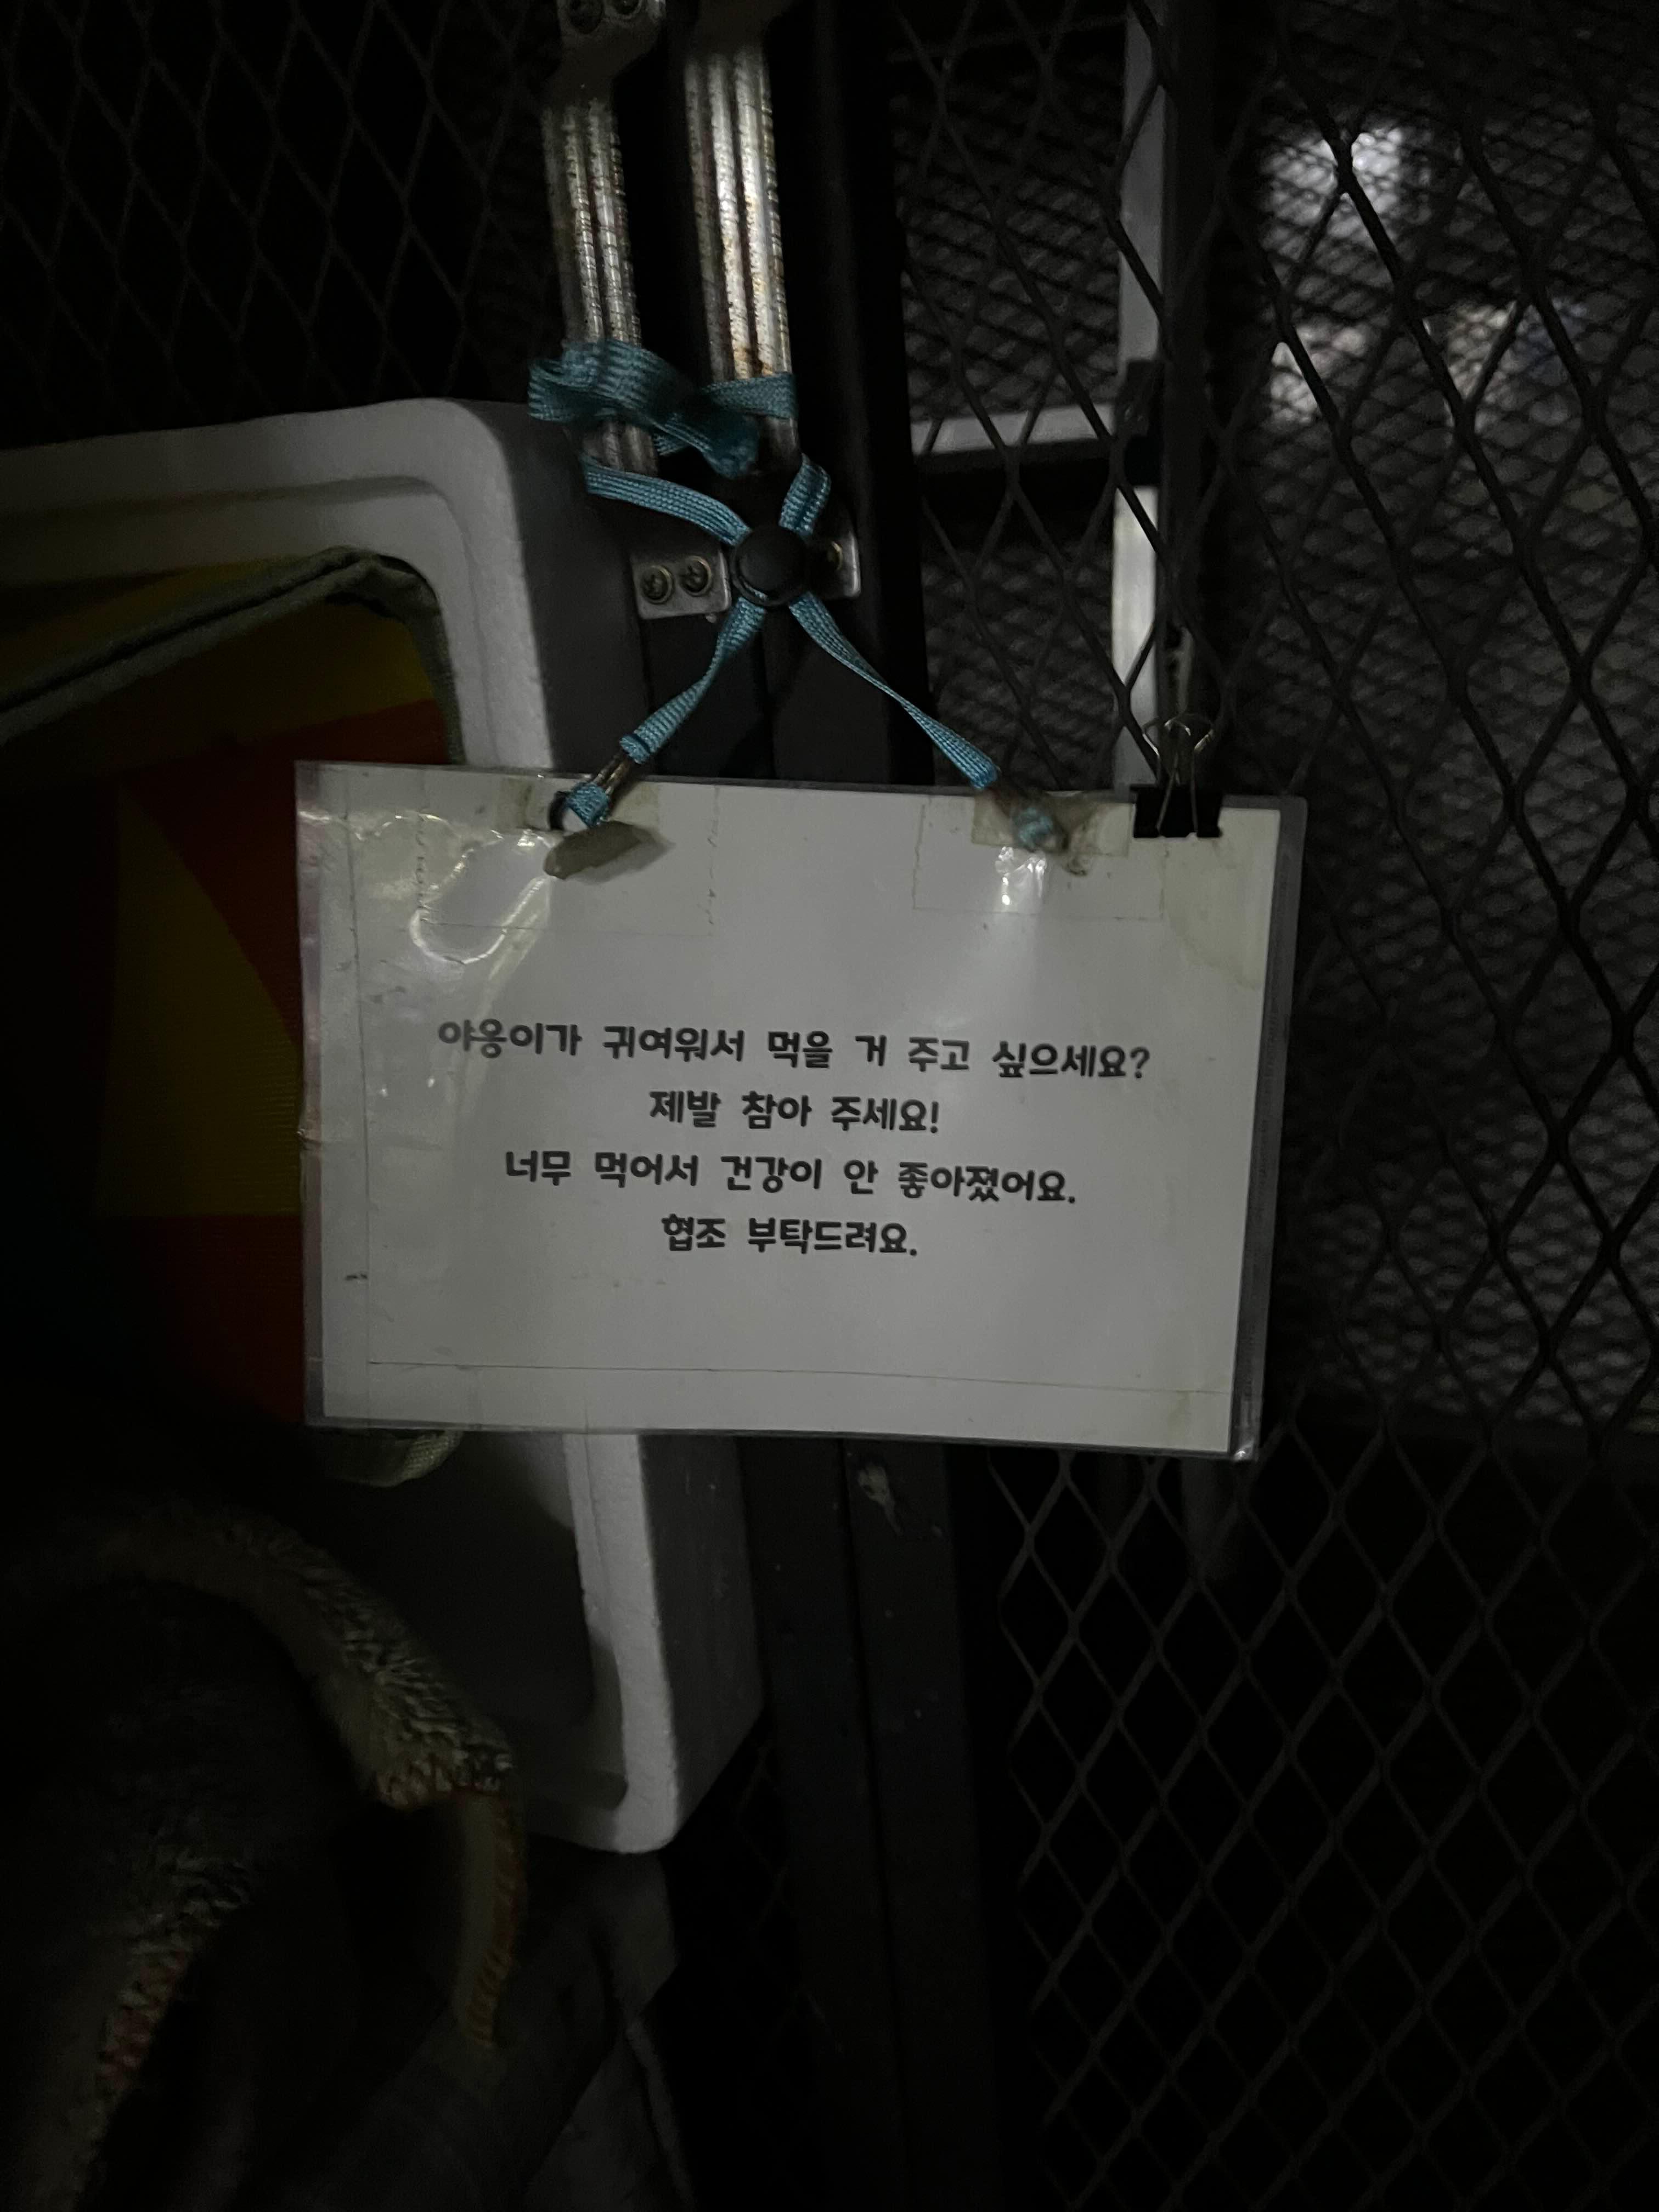 야옹이가 귀여워서 먹을 거 주고 싶으세요?
제발 참아 주세요!
너무 먹어서 건강이 안 좋아졌어요.
협조 부탁드려요.